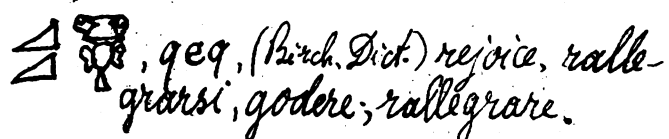 , qeq, (Birch, Dict.) rejoice, ralle-
grarsi, godere; rallegrare.